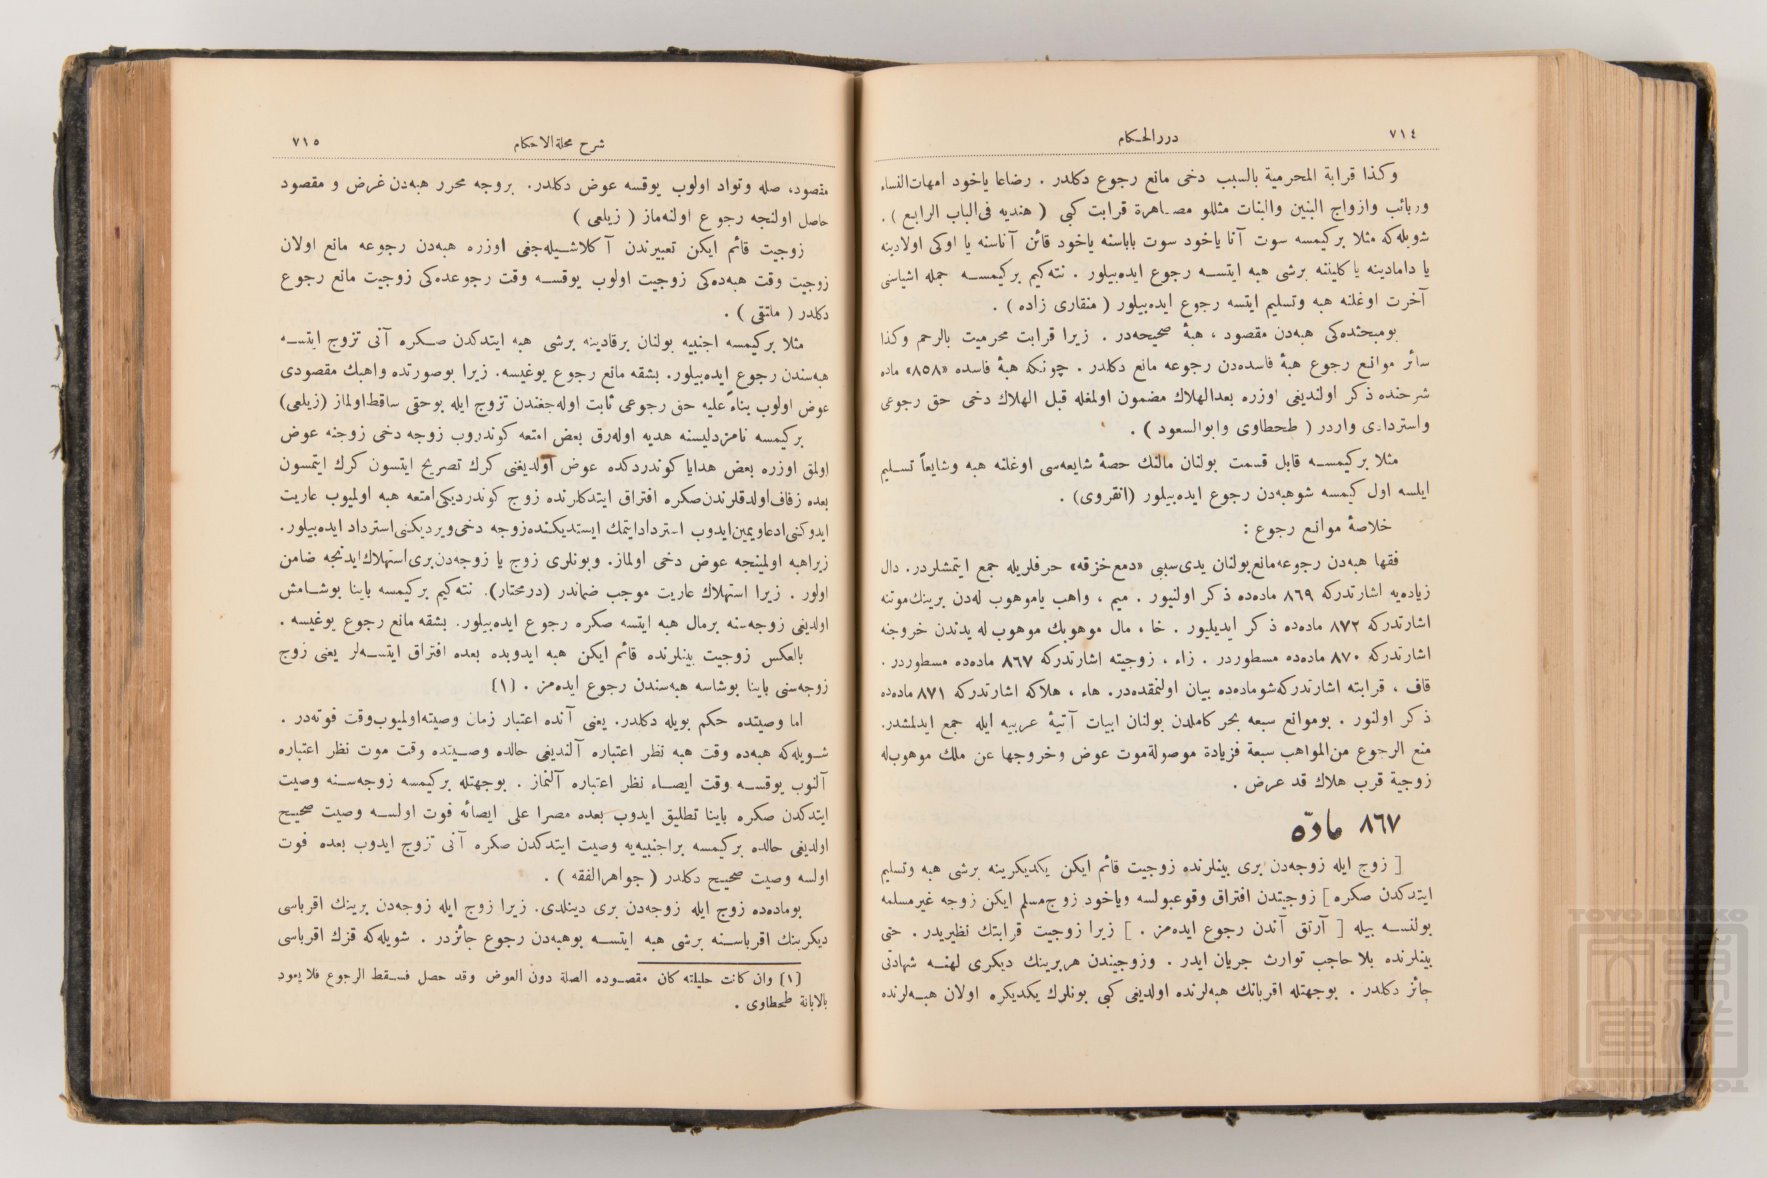 ٧١٤
دررالحكام
وكذا قرابة المحرمية بالسبب دخى مانع رجوع دكلدر . رضاعا ياخود امهات‌النساء
وربائب وازواج البنين والبنات مثللو مصاهرة قرابت كبى ( هنديه فى‌الباب الرابع ) .
شويله‌كه مثلا بركيمسه سوت آنا ياخود سوت باباسنه ياخود قائن آناسنه يا اوكى اولادينه
يا دامادينه يا كليننه برشى هبه ايتسه رجوع ايده‌بيلور . نته‌كيم بركيمسه جمله اشياسنى
آخرت اوغلنه هبه وتسليم ايتسه رجوع ايده‌بيلور ( منقارى زاده ) .
بومبحثده‌كى هبه‌دن مقصود ، هبۀ صحيحه‌در . زيرا قرابت محرميت بالرحم وكذا
سائر موانع رجوع هبۀ فاسده‌دن رجوعه مانع دكلدر . چونكه هبۀ فاسده «٨٥٨» ماده
شرحنده ذكر اولنديغى اوزره بعدالهلاك مضمون اولمغله قبل الهلاك دخى حق رجوعى
واستردادى واردر ( طحطاوى وابوالسعود ) .
مثلا بركيمسه قابل قسمت بولنان مالنك حصۀ شايعه‌سى اوغلنه هبه وشايعاً تسليم
ايلسه اول كيمسه شوهبه‌دن رجوع ايده‌بيلور (انقروى) .
خلاصۀ موانع رجوع :
فقها هبه‌دن رجوعه مانع بولنان يدى سببى «دمع خزقه» حرفلريله جمع ايتمشلردر. دال
زياده‌يه اشارتدركه ٨٦٩ ماده‌ده ذكر اولنيور . ميم ، واهب ياموهوب له‌دن برينك موتنه
اشارتدركه ٨٧٢ ماده‌ده ذكر ايديليور . خا ، مال موهوبك موهوب له يدندن خروجنه
اشارتدركه ٨٧٠ ماده‌ده مسطوردر . زاء ، زوجيته اشارتدركه ٨٦٧ ماده‌ده مسطوردر .
قاف ، قرابته اشارتدركه شوماده‌ده بيان اولنمقده‌در. هاء ، هلاكه اشارتدركه ٨٧١ ماده‌ده
ذكر اولنور . بوموانع سبعه بحر كاملدن بولنان ابيات آتيۀ عربيه ايله جمع ايدلمشدر.
منع الرجوع من‌المواهب سبعة فزيادة موصولة موت عوض وخروجها عن ملك موهوب‌له
زوجية قرب هلاك قد عرض .
٨٦٧ مادّه
[ زوج ايله زوجه‌دن برى بينلرنده زوجيت قائم ايكن يكديكرينه برشى هبه وتسليم
ايتدكدن صكره ] زوجيتدن افتراق وقوعبولسه وياخود زوج مسلم ايكن زوجه غيرمسلمه
بولنسه بيله [ آرتق آندن رجوع ايده‌مز . ] زيرا زوجيت قرابتك نظيريدر . حتى
بينلرنده بلا حاجب توارث جريان ايدر . وزوجيندن هربرينك ديكرى لهنه شهادتى
جائز دكلدر . بوجهتله اقربانك هبه‌لرنده اولديغى كبى بونلرك يكديكره اولان هبه‌لرنده
شرح مجلة‌الاحكام
٧١٥
مقصود، صله وتواد اولوب يوقسه عوض دكلدر. بروجه محرر هبه‌دن غرض و مقصود
حاصل اولنجه رجوع اولنه‌ماز ( زيلعى )
زوجيت قائم ايكن تعبيرندن آكلاشيله‌جغى اوزره هبه‌دن رجوعه مانع اولان
زوجيت وقت هبه‌ده‌كى زوجيت اولوب يوقسه وقت رجوعده‌كى زوجيت مانع رجوع
دكلدر ( ملتقى ) .
مثلا بركيمسه اجنبيه بولنان برقادينه برشى هبه ايتدكدن صكره آنى تزوج ايتسه
هبه‌سندن رجوع ايده‌بيلور. بشقه مانع رجوع يوغيسه. زيرا بوصورتده واهبك مقصودى
عوض اولوب بناءً عليه حق رجوعى ثابت اوله‌جغندن تزوج ايله بوحقى ساقط اولماز (زيلعى)
بركيمسه نامزدليسنه هديه اوله‌رق بعض امتعه كوندروب زوجه دخى زوجنه عوض
اولمق اوزره بعض هدايا كوندردكده عوض اولديغنى كرك تصريح ايتسون كرك ايتمسون
بعده زفاف اولدقلرندن صكره افتراق ايتدكلرنده زوج كوندرديكى امتعه هبه اولميوب عاريت
ايدوكنى ادعا ويمين ايدوب استرداد ايتمك ايستديكنده زوجه دخى ويرديكنى استرداد ايده‌بيلور.
زيرا هبه اولمينجه عوض دخى اولماز. وبونلرى زوج يا زوجه‌دن برى استهلاك ايدنجه ضامن
اولور . زيرا استهلاك عاريت موجب ضماندر (درمختار). نته‌كيم بركيمسه باينا بوشامش
اولديغى زوجه‌سنه برمال هبه ايتسه صكره رجوع ايده‌بيلور. بشقه مانع رجوع يوغيسه .
بالعكس زوجيت بينلرنده قائم ايكن هبه ايدوبده بعده افتراق ايتسه‌لر يعنى زوج
زوجه‌سنى باينا بوشاسه هبه‌سندن رجوع ايده‌مز . (١)
اما وصيتده حكم بويله دكلدر. يعنى آنده اعتبار زمان وصيته اولميوب وقت فوته‌در .
شويله‌كه هبه‌ده وقت هبه نظر اعتباره آلنديغى حالده وصيتده وقت موت نظر اعتباره
آلنوب يوقسه وقت ايصاء نظر اعتباره آلنماز . بوجهتله بركيمسه زوجه‌سنه وصيت
ايتدكدن صكره باينا تطليق ايدوب بعده مصرا على ايصائه فوت اولسه وصيت صحيح
اولديغى حالده بركيمسه براجنبيه‌يه وصيت ايتدكدن صكره آنى تزوج ايدوب بعده فوت
اولسه وصيت صحيح دكلدر ( جواهرالفقه ) .
بوماده‌ده زوج ايله زوجه‌دن برى دينلدى. زيرا زوج ايله زوجه‌دن برينك اقرباسى
ديكرينك اقرباسنه برشى هبه ايتسه بوهبه‌دن رجوع جائزدر . شويله‌كه قزك اقرباسى
(١) وان كانت حليلته كان مقصوده الصلة دون العوض وقد حصل فسقط الرجوع فلا يعود
بالابانة طحطاوى .
TOYO BUNKO